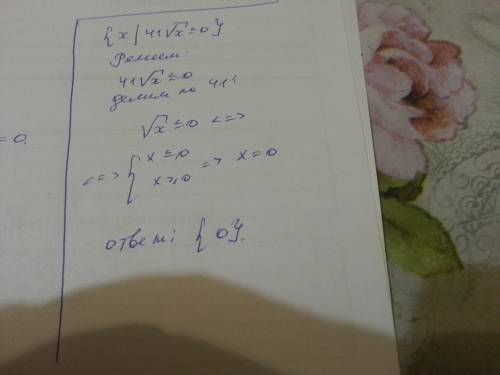 = 0.
{x | 41√x ≤ 0}
Решим:
41√x ≤ 0
делим на 41:
√x ≤ 0 <=>
<=> { x ≤ 0
x ≥ 0 => x = 0
ответ: {0}.